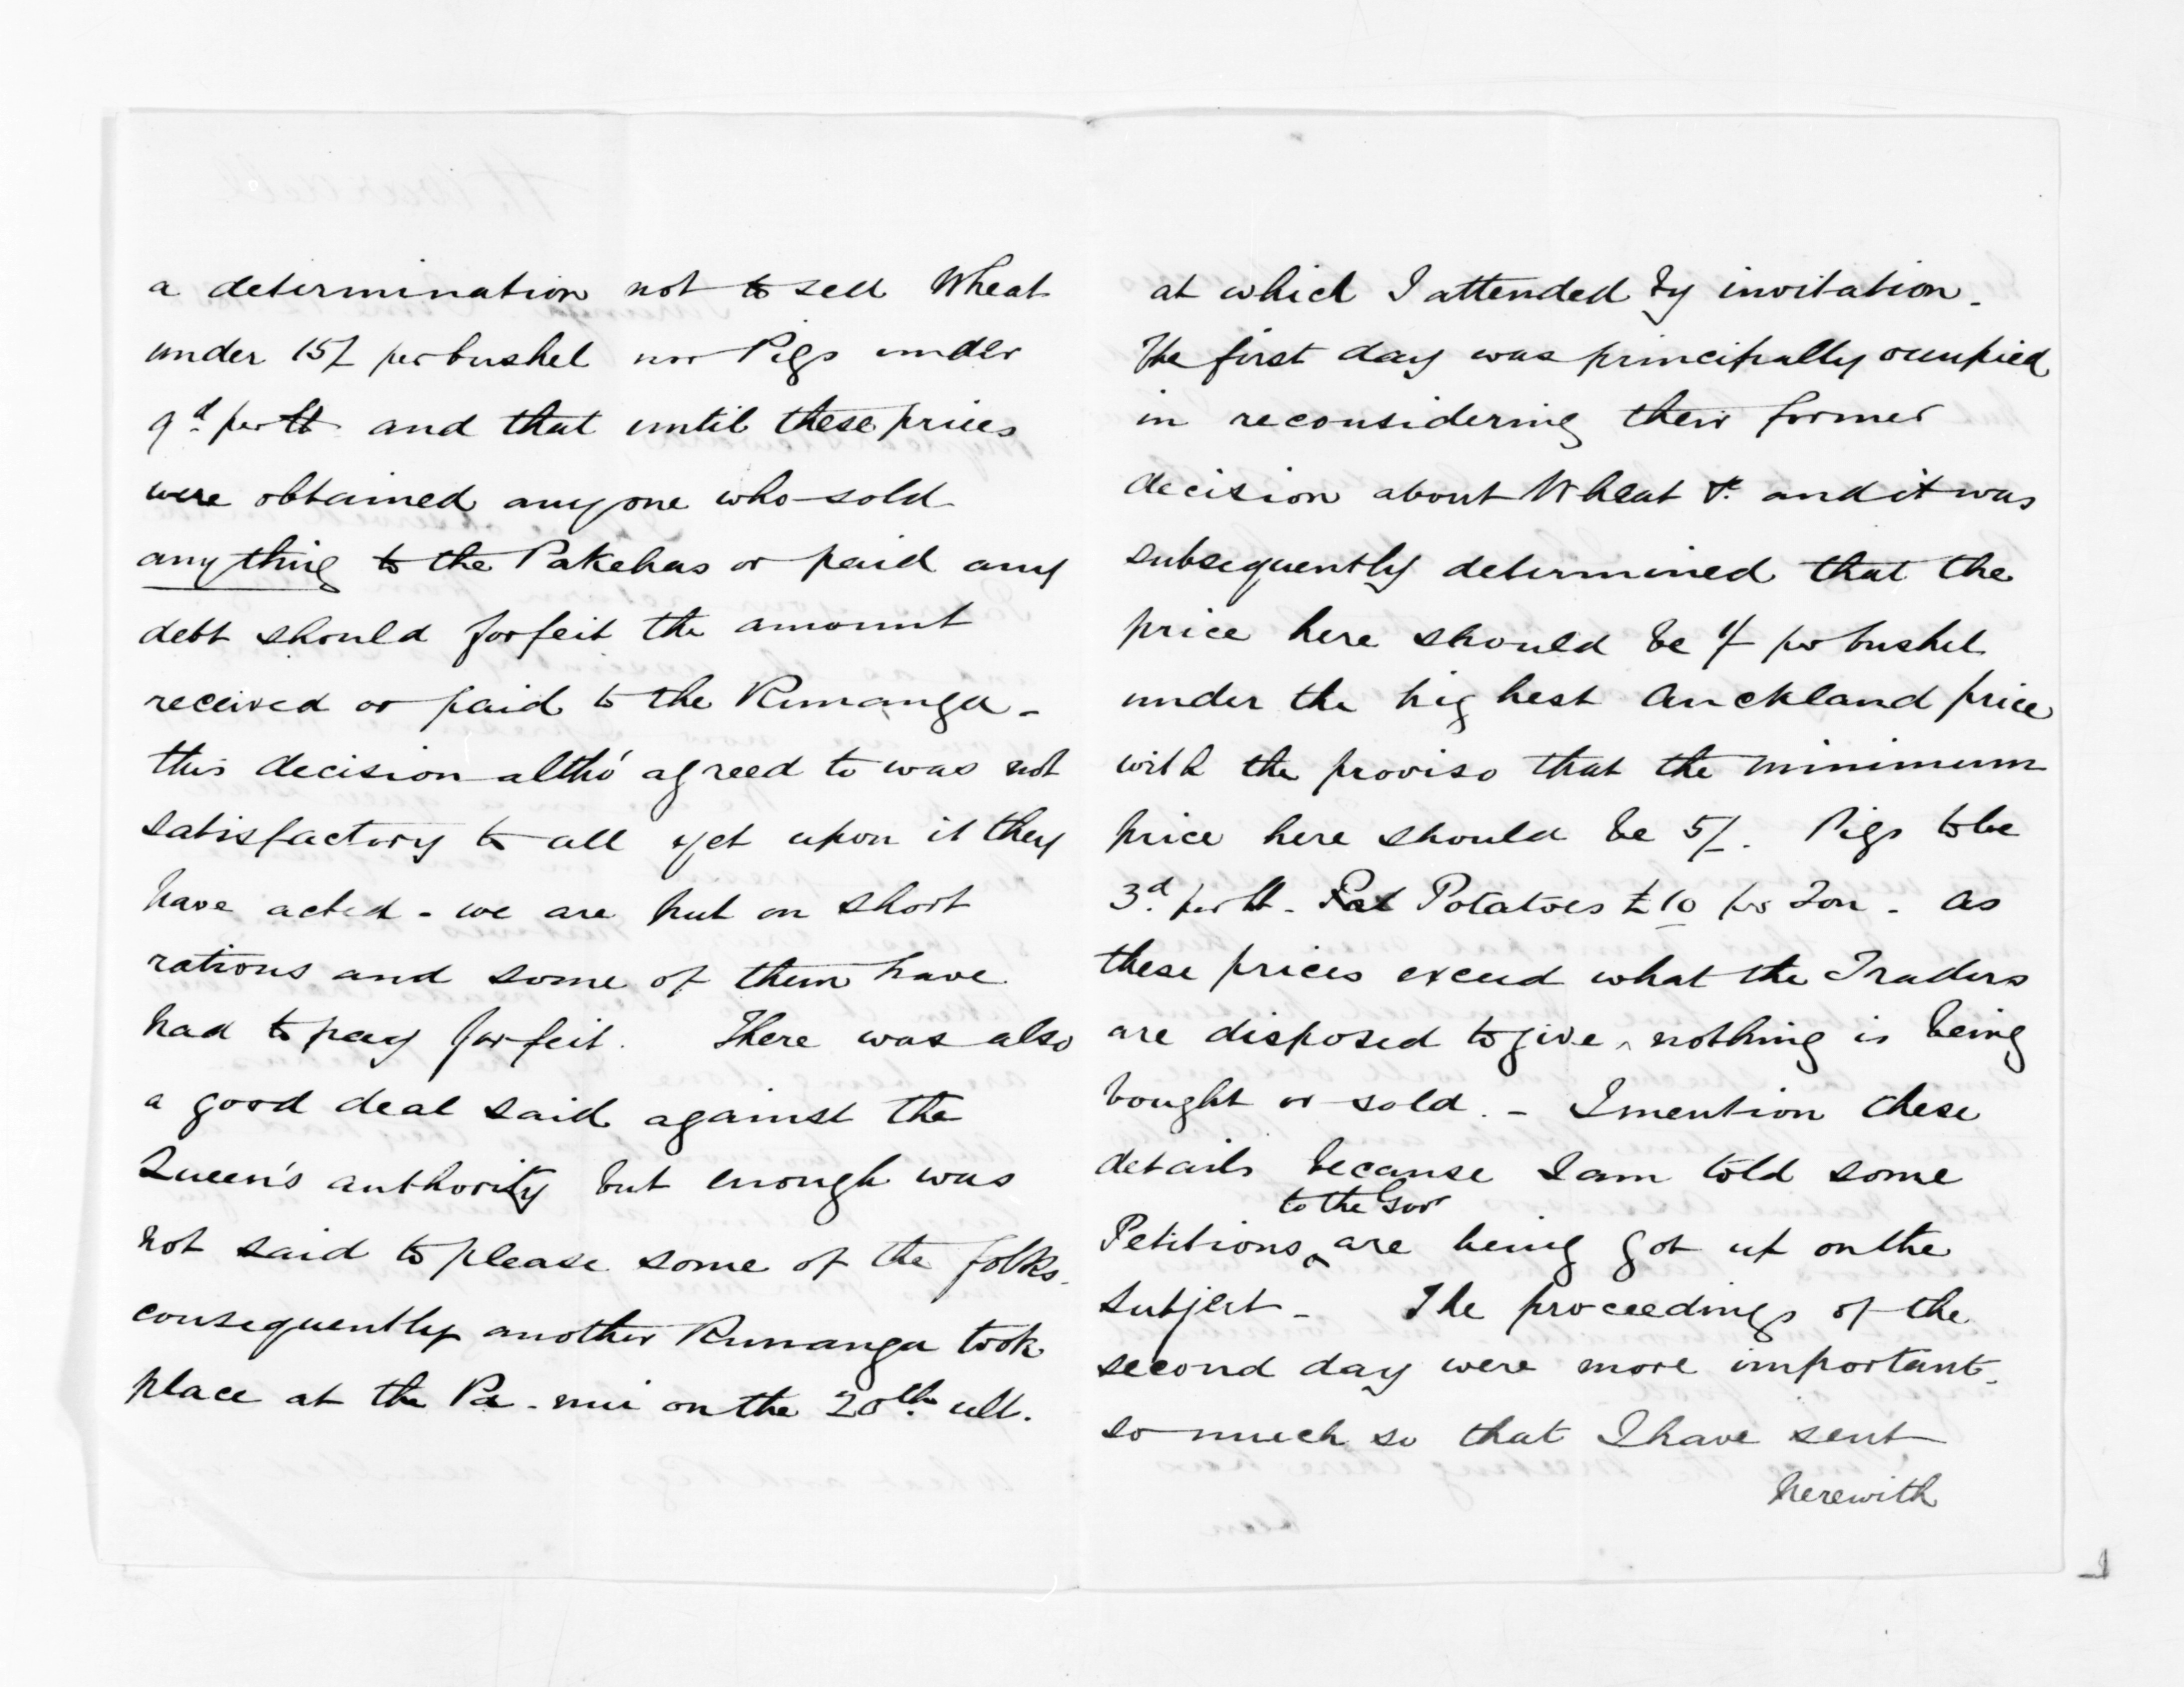 a determination not to sell Wheat
under 15/- per bushel nor Pigs under
9d. per lb and that until these prices
were obtained anyone who sold
anything to the Pakehas or paid any
debt should forfeit the amount
received or paid to the Runanga -
this decision altho' agreed to was not
satisfactory to all yet upon it they
have acted - we are put on short
rations and some of them have
had to pay forfeit. There was also
a good deal said against the
Queen's authority but enough was
not said to please some of the folks -
consequently another Runanga took
place at the Pa-nui on the 20th. ult.
at which I attended by invitation -
The first day was principally occupied
in reconsidering their former
decision about Wheat &. and it was
subsequently determined that the
price here should be 1/- per bushel
under the highest Auckland price
with the proviso that the minimum
price here should be 5/-. Pigs to be
3d. per lb - Potatoes £10 per Ton - as
these prices exceed what the Traders
are disposed to give, nothing is being
bought or sold. - I mention these
details because I am told some
to the Govr
Petitions ^ are being got up on the
subject - The proceedings of the
second day were more important -
so much so that I have sent
herewith